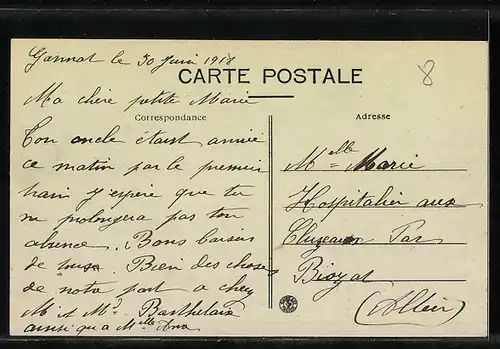 Gannat le 30 Juin 1918
CARTE POSTALE
8
Ma chère petite Marie
Correspondance
Ton oncle étant arrivé
ce matin par le premier
train j'espère que tu
ne prolongera pas ton
absence. Bons baisers
de tous. Bien des choses
de notre part a chez
M et Me Barthelaix
ainsi qu'a Melle Ana
Adresse
Melle Marie
Hospitalier aux
Cluzeaux Par
Biozat
(Allier)